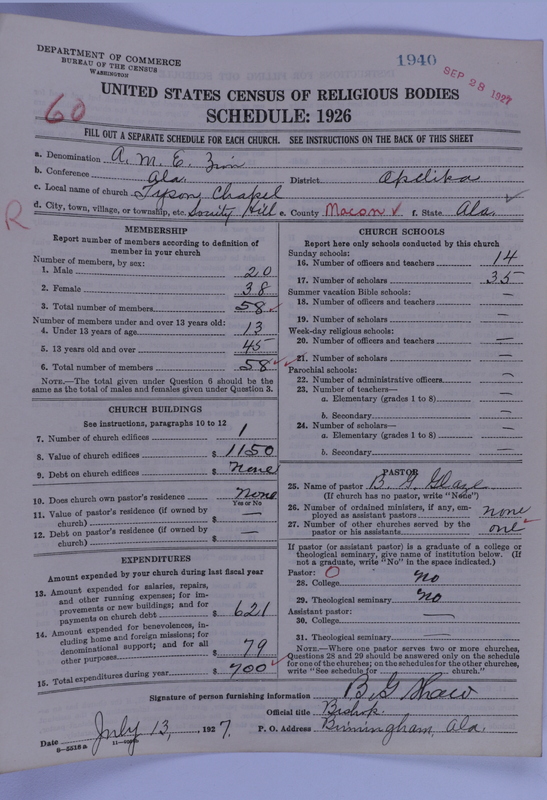 DEPARTMENT OF COMMERCE
BUREAU OF THE CENSUS
WASHINGTON
1940
SEP 28 1927
60
UNITED STATES CENSUS OF RELIGIOUS BODIES
SCHEDULE: 1926
FILL OUT A SEPARATE SCHEDULE FOR EACH CHURCH. SEE INSTRUCTIONS ON THE BACK OF THIS SHEET
a. Denomination A. M. E. Zion
b. Conference Ala. District Opelika
c. Local name of church Tyson Chapel
d. City, town, village, or township, etc. Society Hill e. County Macon f. State Ala.
R
MEMBERSHIP
Report number of members according to definition of
member in your church
Number of members, by sex:
1. Male 20
2. Female 38
3. Total number of members 58
Number of members under and over 13 years old:
4. Under 13 years of age 13
5. 13 years old and over 45
6. Total number of members 58
NOTE.—The total given under Question 6 should be the
same as the total of males and females given under Question 3.
CHURCH BUILDINGS
See instructions, paragraphs 10 to 12
7. Number of church edifices 1
8. Value of church edifices $ 1150
9. Debt on church edifices $ None
10. Does church own pastor's residence None
Yes or No
11. Value of pastor's residence (if owned by
church) $ —
12. Debt on pastor's residence (if owned by
church) $ —
EXPENDITURES
Amount expended by your church during last fiscal year
13. Amount expended for salaries, repairs,
and other running expenses; for im-
provements or new buildings; and for
payments on church debt $ 621
14. Amount expended for benevolences, in-
cluding home and foreign missions; for
denominational support; and for all
other purposes $ 79
15. Total expenditures during year $ 700
CHURCH SCHOOLS
Report here only schools conducted by this church
Sunday schools:
16. Number of officers and teachers 14
17. Number of scholars 35
Summer vacation Bible schools:
18. Number of officers and teachers —
19. Number of scholars —
Week-day religious schools:
20. Number of officers and teachers —
21. Number of scholars —
Parochial schools:
22. Number of administrative officers —
23. Number of teachers—
a. Elementary (grades 1 to 8) —
b. Secondary —
24. Number of scholars—
a. Elementary (grades 1 to 8) —
b. Secondary —
PASTOR
25. Name of pastor B. G. Glaze
(If church has no pastor, write "None")
26. Number of ordained ministers, if any, em-
ployed as assistant pastors none
27. Number of other churches served by the
pastor or his assistants one
If pastor (or assistant pastor) is a graduate of a college or
theological seminary, give name of institution below. (If
not a graduate, write "No" in the space indicated.)
Pastor: O
28. College No
29. Theological seminary No
Assistant pastor:
30. College —
31. Theological seminary —
NOTE.—Where one pastor serves two or more churches,
Questions 28 and 29 should be answered only on the schedule
for one of the churches; on the schedules for the other churches,
write "See schedule for church."
Signature of person furnishing information B G Shaw
Official title Bishop
Date July 13, 1927. P. O. Address Birmingham, Ala.
8-5518a